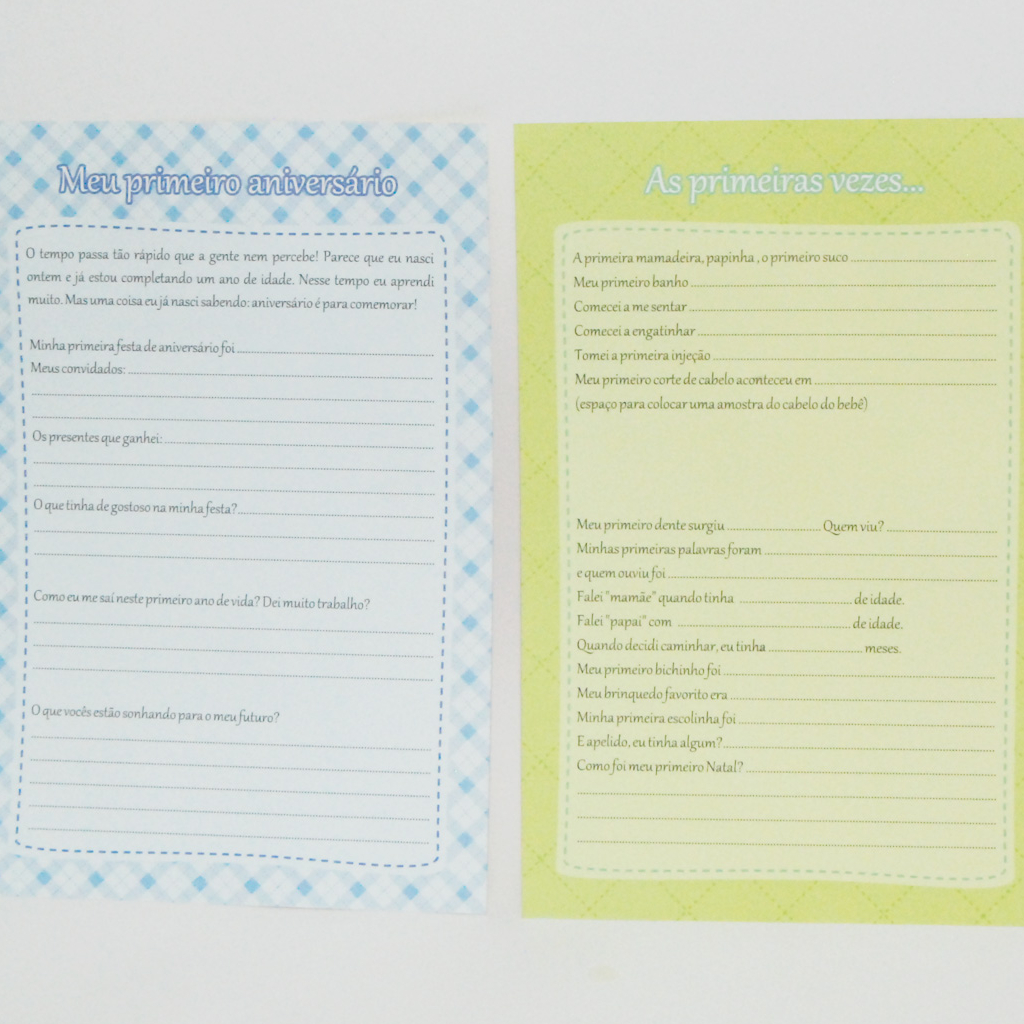 Meu primeiro aniversário
O tempo passa tão rápido que a gente nem percebe! Parece que eu nasci
ontem e já estou completando um ano de idade. Nesse tempo eu aprendi
muito. Mas uma coisa eu já nasci sabendo: aniversário é para comemorar!
Minha primeira festa de aniversário foi
Meus convidados:
Os presentes que ganhei:
O que tinha de gostoso na minha festa?
Como eu me saí neste primeiro ano de vida? Dei muito trabalho?
O que vocês estão sonhando para o meu futuro?
As primeiras vezes...
A primeira mamadeira, papinha , o primeiro suco
Meu primeiro banho
Comecei a me sentar
Comecei a engatinhar
Tomei a primeira injeção
Meu primeiro corte de cabelo aconteceu em
(espaço para colocar uma amostra do cabelo do bebê)
Meu primeiro dente surgiu Quem viu?
Minhas primeiras palavras foram
e quem ouviu foi
Falei "mamãe" quando tinha de idade.
Falei "papai" com de idade.
Quando decidi caminhar, eu tinha meses.
Meu primeiro bichinho foi
Meu brinquedo favorito era
Minha primeira escolinha foi
E apelido, eu tinha algum?
Como foi meu primeiro Natal?